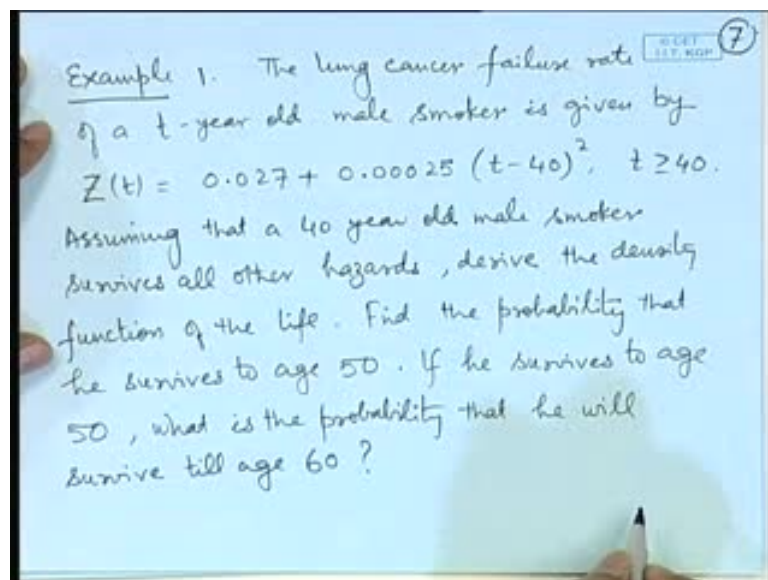 Example 1. The lung cancer failure rate
© CET
I.I.T. KGP
7
of a t-year old male smoker is given by
Z(t) = 0.027 + 0.00025 (t-40)², t ≥ 40.
Assuming that a 40 year old male smoker
survives all other hazards, derive the density
function of the life. Find the probability that
he survives to age 50. If he survives to age
50, what is the probability that he will
survive till age 60?